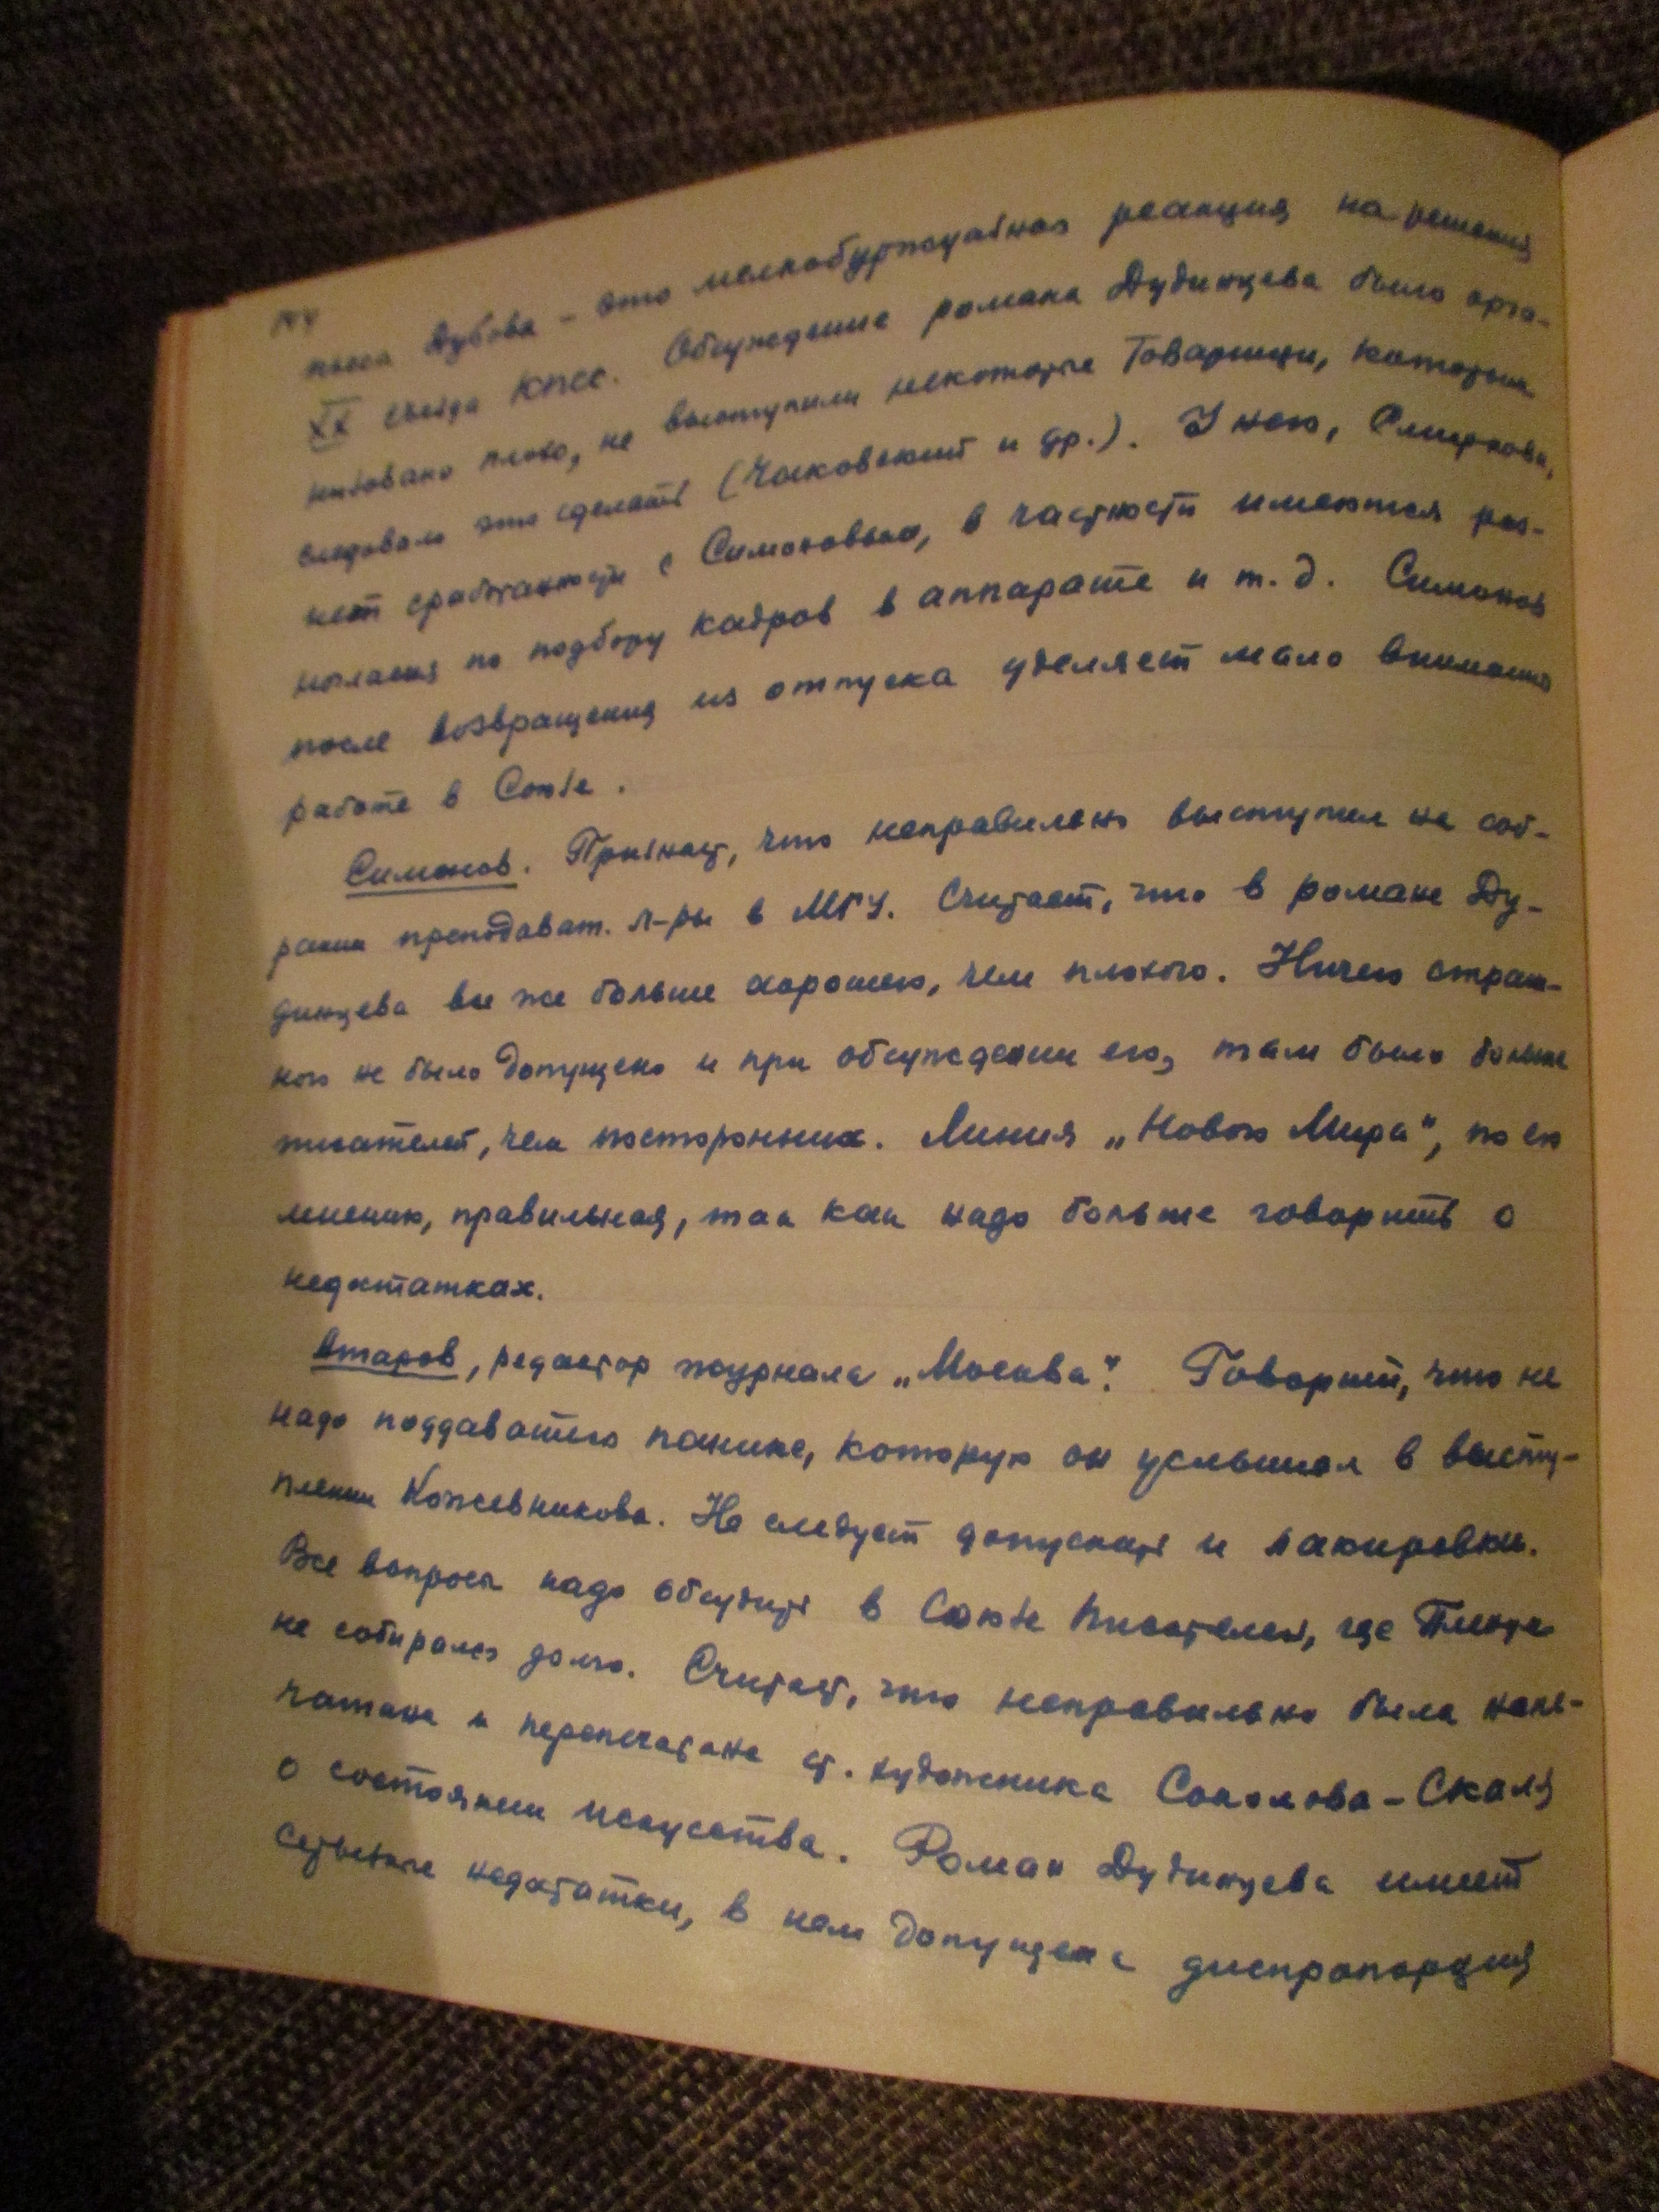 144
пьеса Дубова – это мелкобуржуазная реакция на решения
XX съезда КПСС. Обсуждение романа Дудинцева было орга-
низовано плохо, не выступили некоторые товарищи, которым
следовало это сделать (Чаковский и др.). У него, Смирнова,
нет сработанности с Симоновым, в частности имеются раз-
ногласия по подбору кадров в аппарате и т. д. Симонов
после возвращения из отпуска уделяет мало внимания
работе в Союзе.
Симонов. Признает, что неправильно выступил на соб-
рании преподават. л-ры в МГУ. Считает, что в романе Ду-
динцева все же больше хорошего, чем плохого. Ничего страш-
ного не было допущено и при обсуждении его, там было больше
писателей, чем посторонних. Линия „Нового Мира", по его
мнению, правильная, так как надо больше говорить о
недостатках.
Атаров, редактор журнала „Москва". Говорит, что не
надо поддаваться панике, которую он услышал в высту-
плении Кожевникова. Не следует допускать и лакировки.
Все вопросы надо обсудить в Союзе писателей, где Пленум
не собирался долго. Считает, что неправильно была напе-
чатана и перепечатана ст. художника Соколова-Скаля
о состоянии искусства. Роман Дудинцева имеет
серьезные недостатки, в нем допущена диспропорция